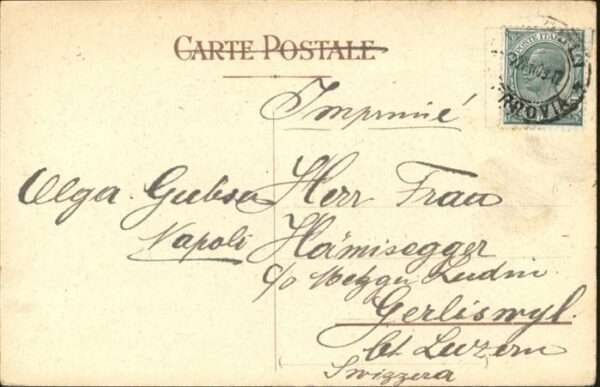 CARTE POSTALE
POSTE ITALI
Imprimé
Olga Gubser
Napoli
Herr Frau
Hämisegger
c/o Metzger
Gerliswyl.
bt Luzern
Svizzera